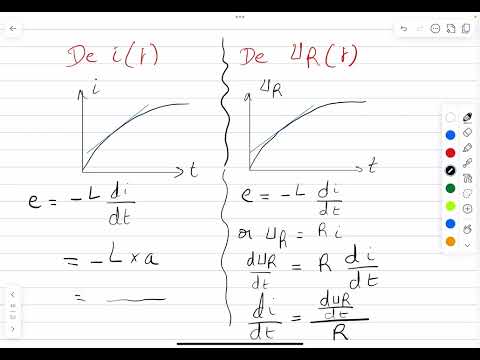 De i(t)
i
t
e = -L di/dt
= -L × a
= ______
De uR(t)
uR
t
e = -L di/dt
or uR = R i
duR/dt = R di/dt
di/dt = (duR/dt)/R